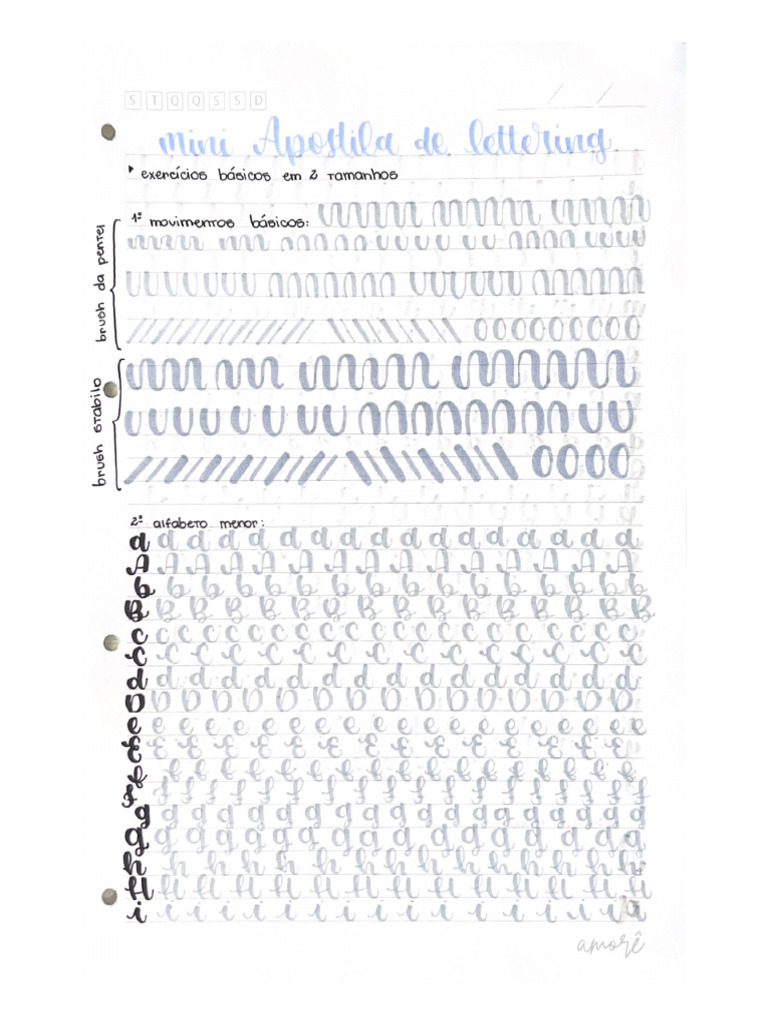 S T Q Q S S D / /
mini Apostila de lettering
exercícios básicos em 2 tamanhos
1º movimentos básicos:
brush da pentel
brush stabilo
2º alfabeto menor:
a a a a a a a a a a a a a a a a a
A A A A A A A A A A A A A A A
b b b b b b b b b b b b b b b b
B B B B B B B B B B B B B B B B
c c c c c c c c c c c c c c c c c c c c c
C C C C C C C C C C C C C
d d d d d d d d d d d d d d d d
D D D D D D D D D D D D D D D D D
e e e e e e e e e e e e e e e e e e e
E E E E E E E E E E E E E E
f f f f f f f f f f f f f f f f f f
g g g g g g g g g g g g g g g g g
h h h h h h h h h h h h h h
H H H H H H H H H H H H H H
i i i i i i i i i i i i i i i i
amorê